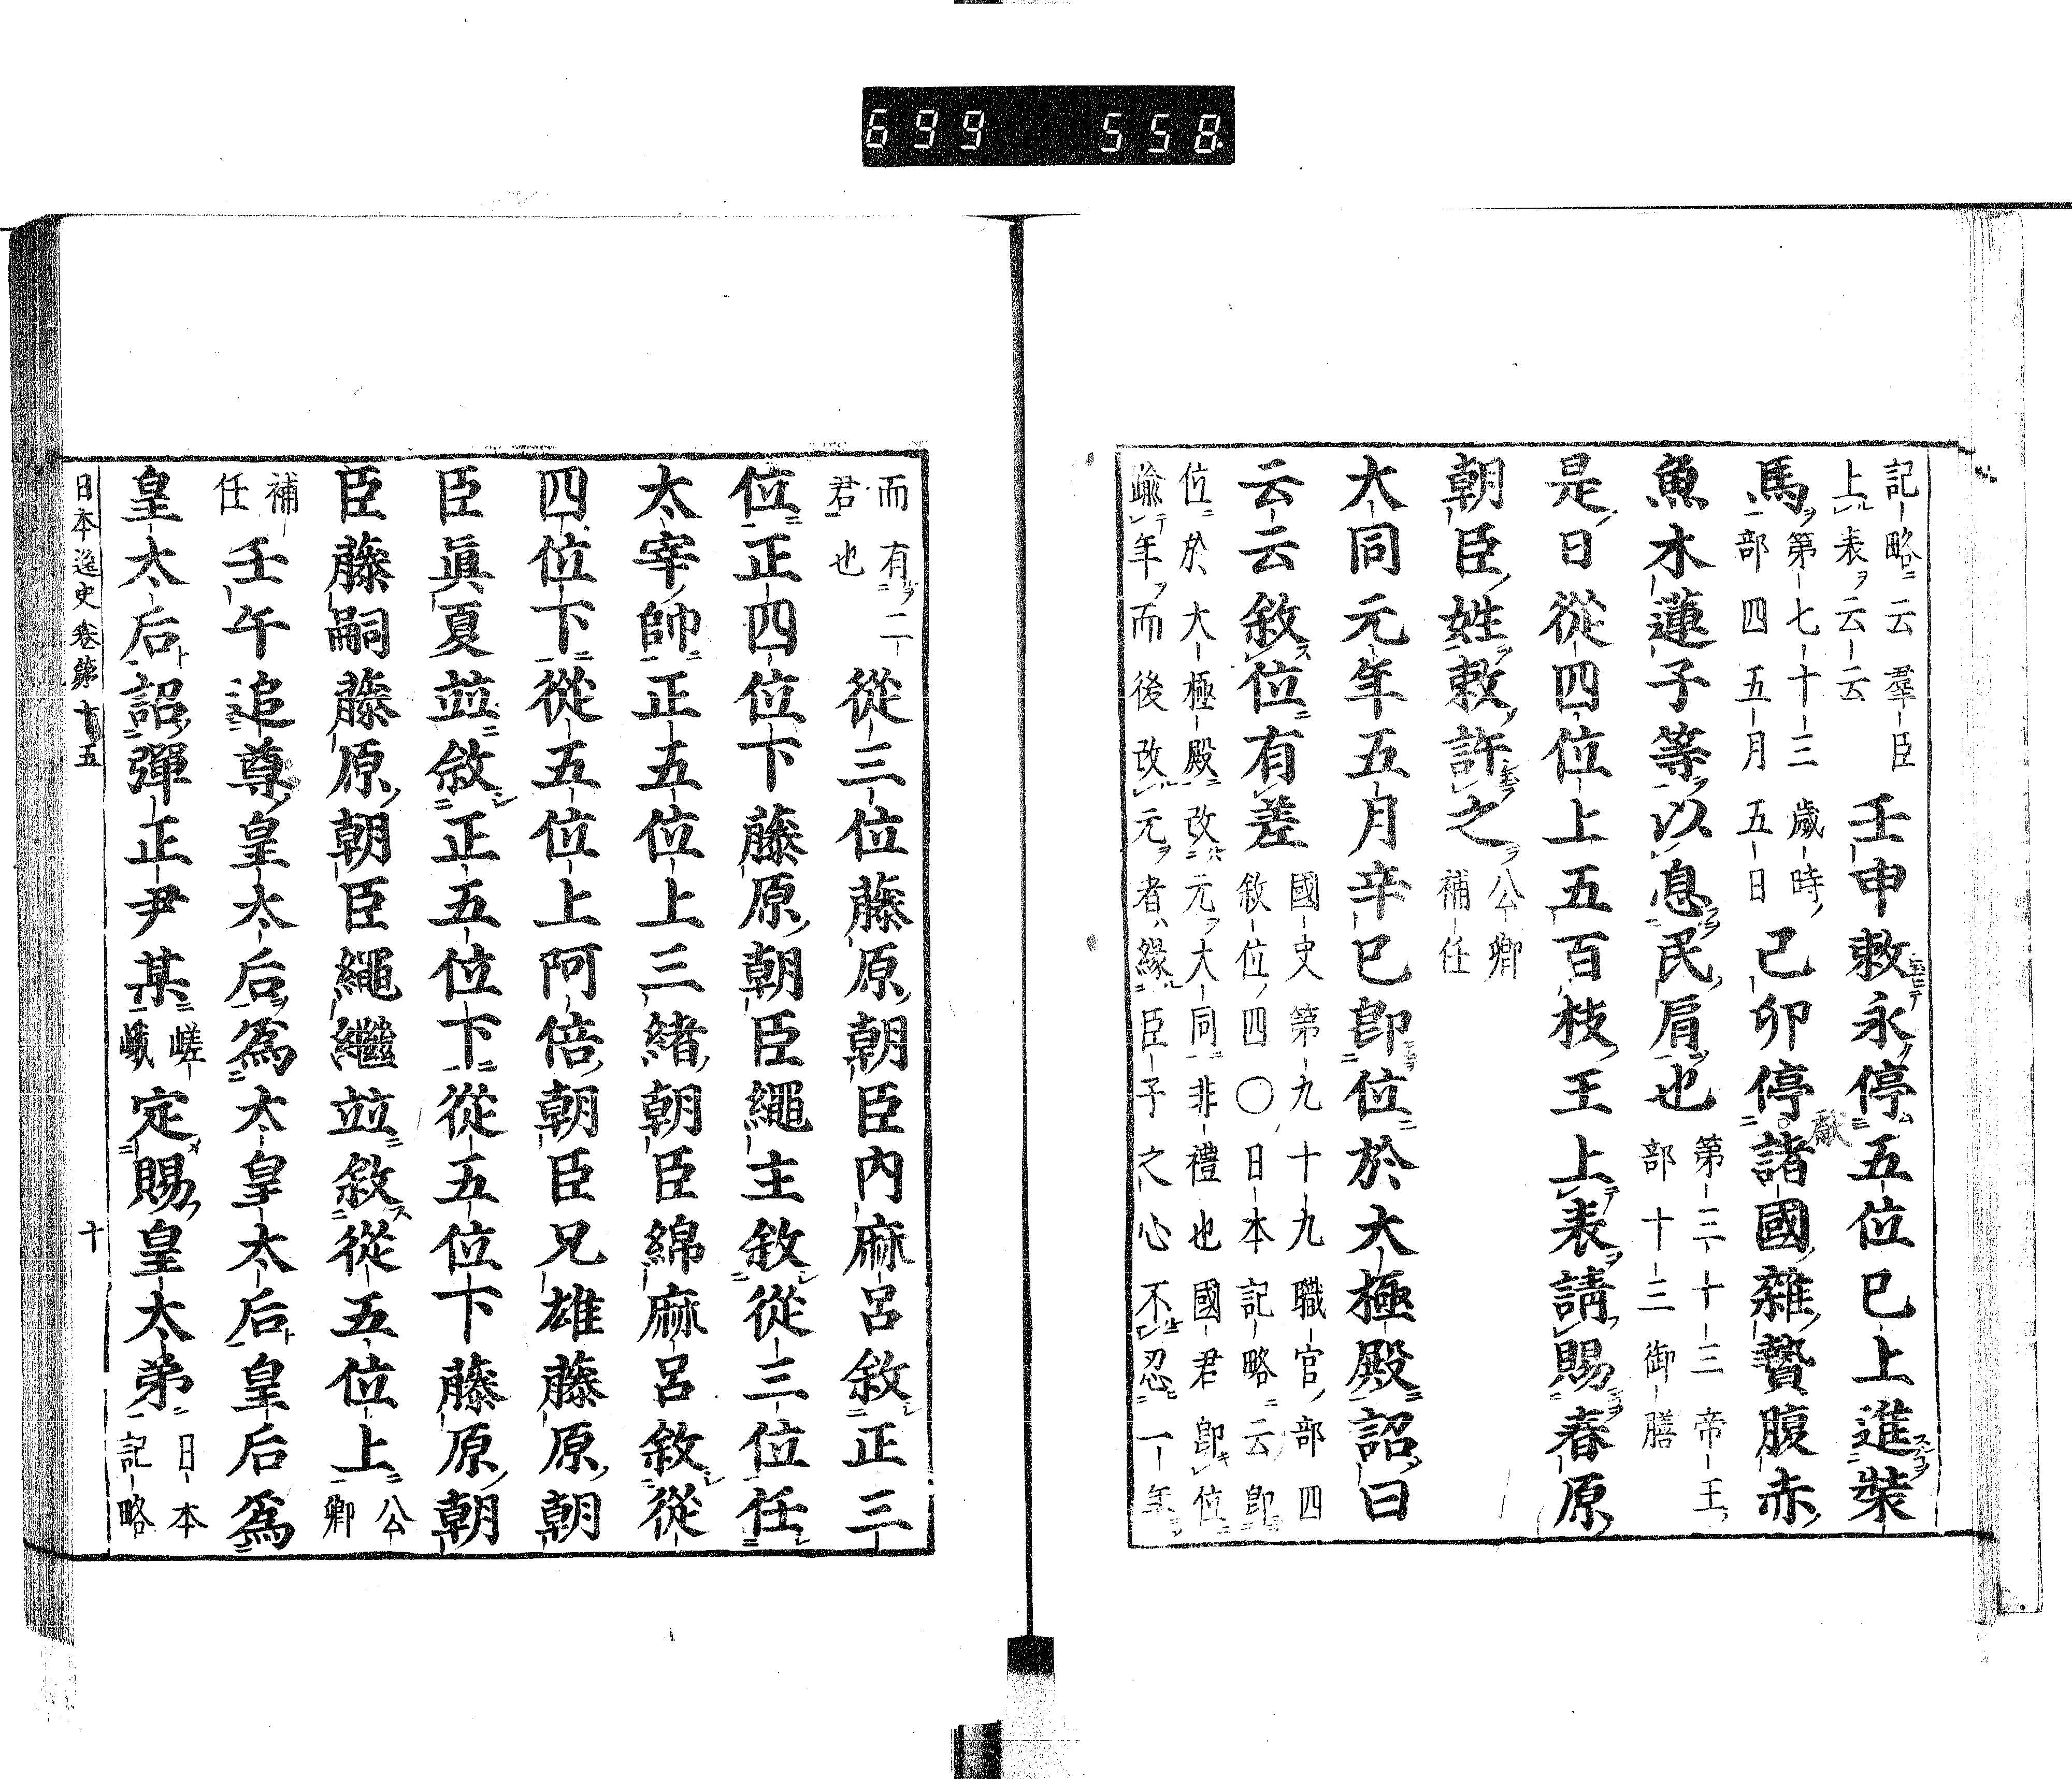 699 558
記略云羣臣
上表云云
壬申敕永停五位已上進裝
馬
第七十三歲時
部四五月五日
己卯停獻諸國雜贄腹赤
魚木蓮子等以息民肩也
第三十三帝王
部十三御膳
是日從四位上五百枝王上表請賜春原
朝臣姓敕許之
公卿
補任
大同元年五月辛巳卽位於大極殿詔曰
云云敘位有差
國史第九十九職官部四
敘位四〇日本記略云卽
位於大極殿改元大同非禮也國君卽位
踰年而後改元者緣臣子之心不忍一年
而有二
君也
從三位藤原朝臣內麻呂敘正三
位正四位下藤原朝臣繩主敘從三位任
太宰帥正五位上三緒朝臣綿麻呂敘從
四位下從五位上阿倍朝臣兄雄藤原朝
臣眞夏竝敘正五位下從五位下藤原朝
臣藤嗣藤原朝臣繩繼竝敘從五位上
公卿
補任
壬午追尊皇太后爲太皇太后皇后爲
皇太后詔彈正尹某
嵯峨
定賜皇太弟
日本
記略
日本逸史卷第十五 十